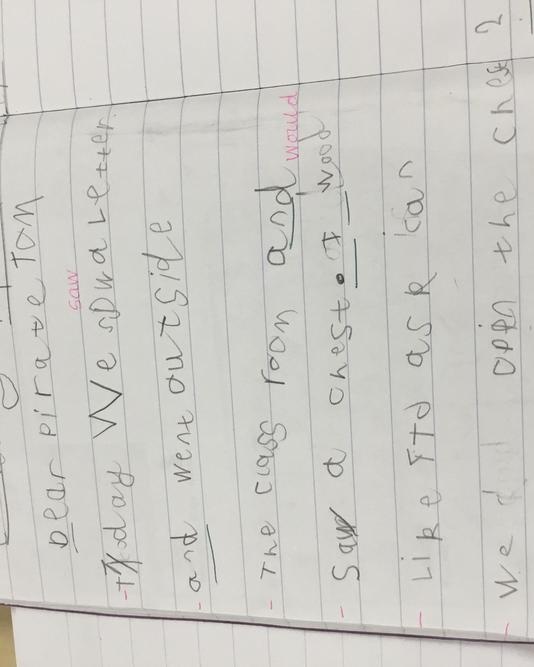 Dear pirate Tom
saw
Today We spwa Letter
and went outside
would
The class room and
Saw a chest. I wood
Like Tto ask kan
We open the chest?